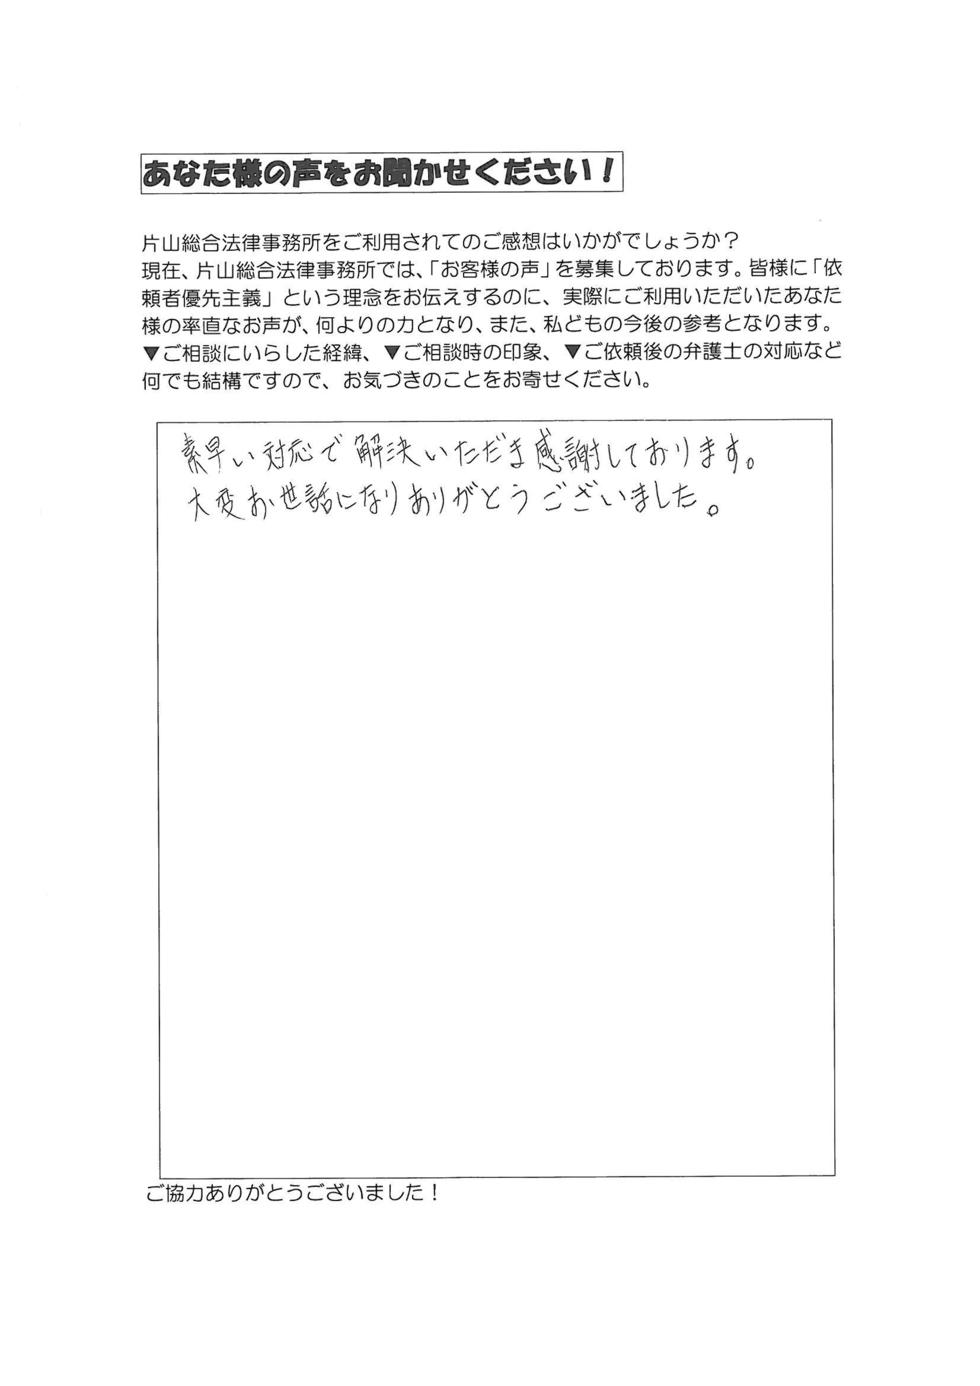 あなた様の声をお聞かせください！
片山総合法律事務所をご利用されてのご感想はいかがでしょうか？
現在、片山総合法律事務所では、「お客様の声」を募集しております。皆様に「依
頼者優先主義」という理念をお伝えするのに、実際にご利用いただいたあなた
様の率直なお声が、何よりの力となり、また、私どもの今後の参考となります。
▼ご相談にいらした経緯、▼ご相談時の印象、▼ご依頼後の弁護士の対応など
何でも結構ですので、お気づきのことをお寄せください。
素早い対応で解決いただき感謝しております。
大変お世話になりありがとうございました。
ご協力ありがとうございました！